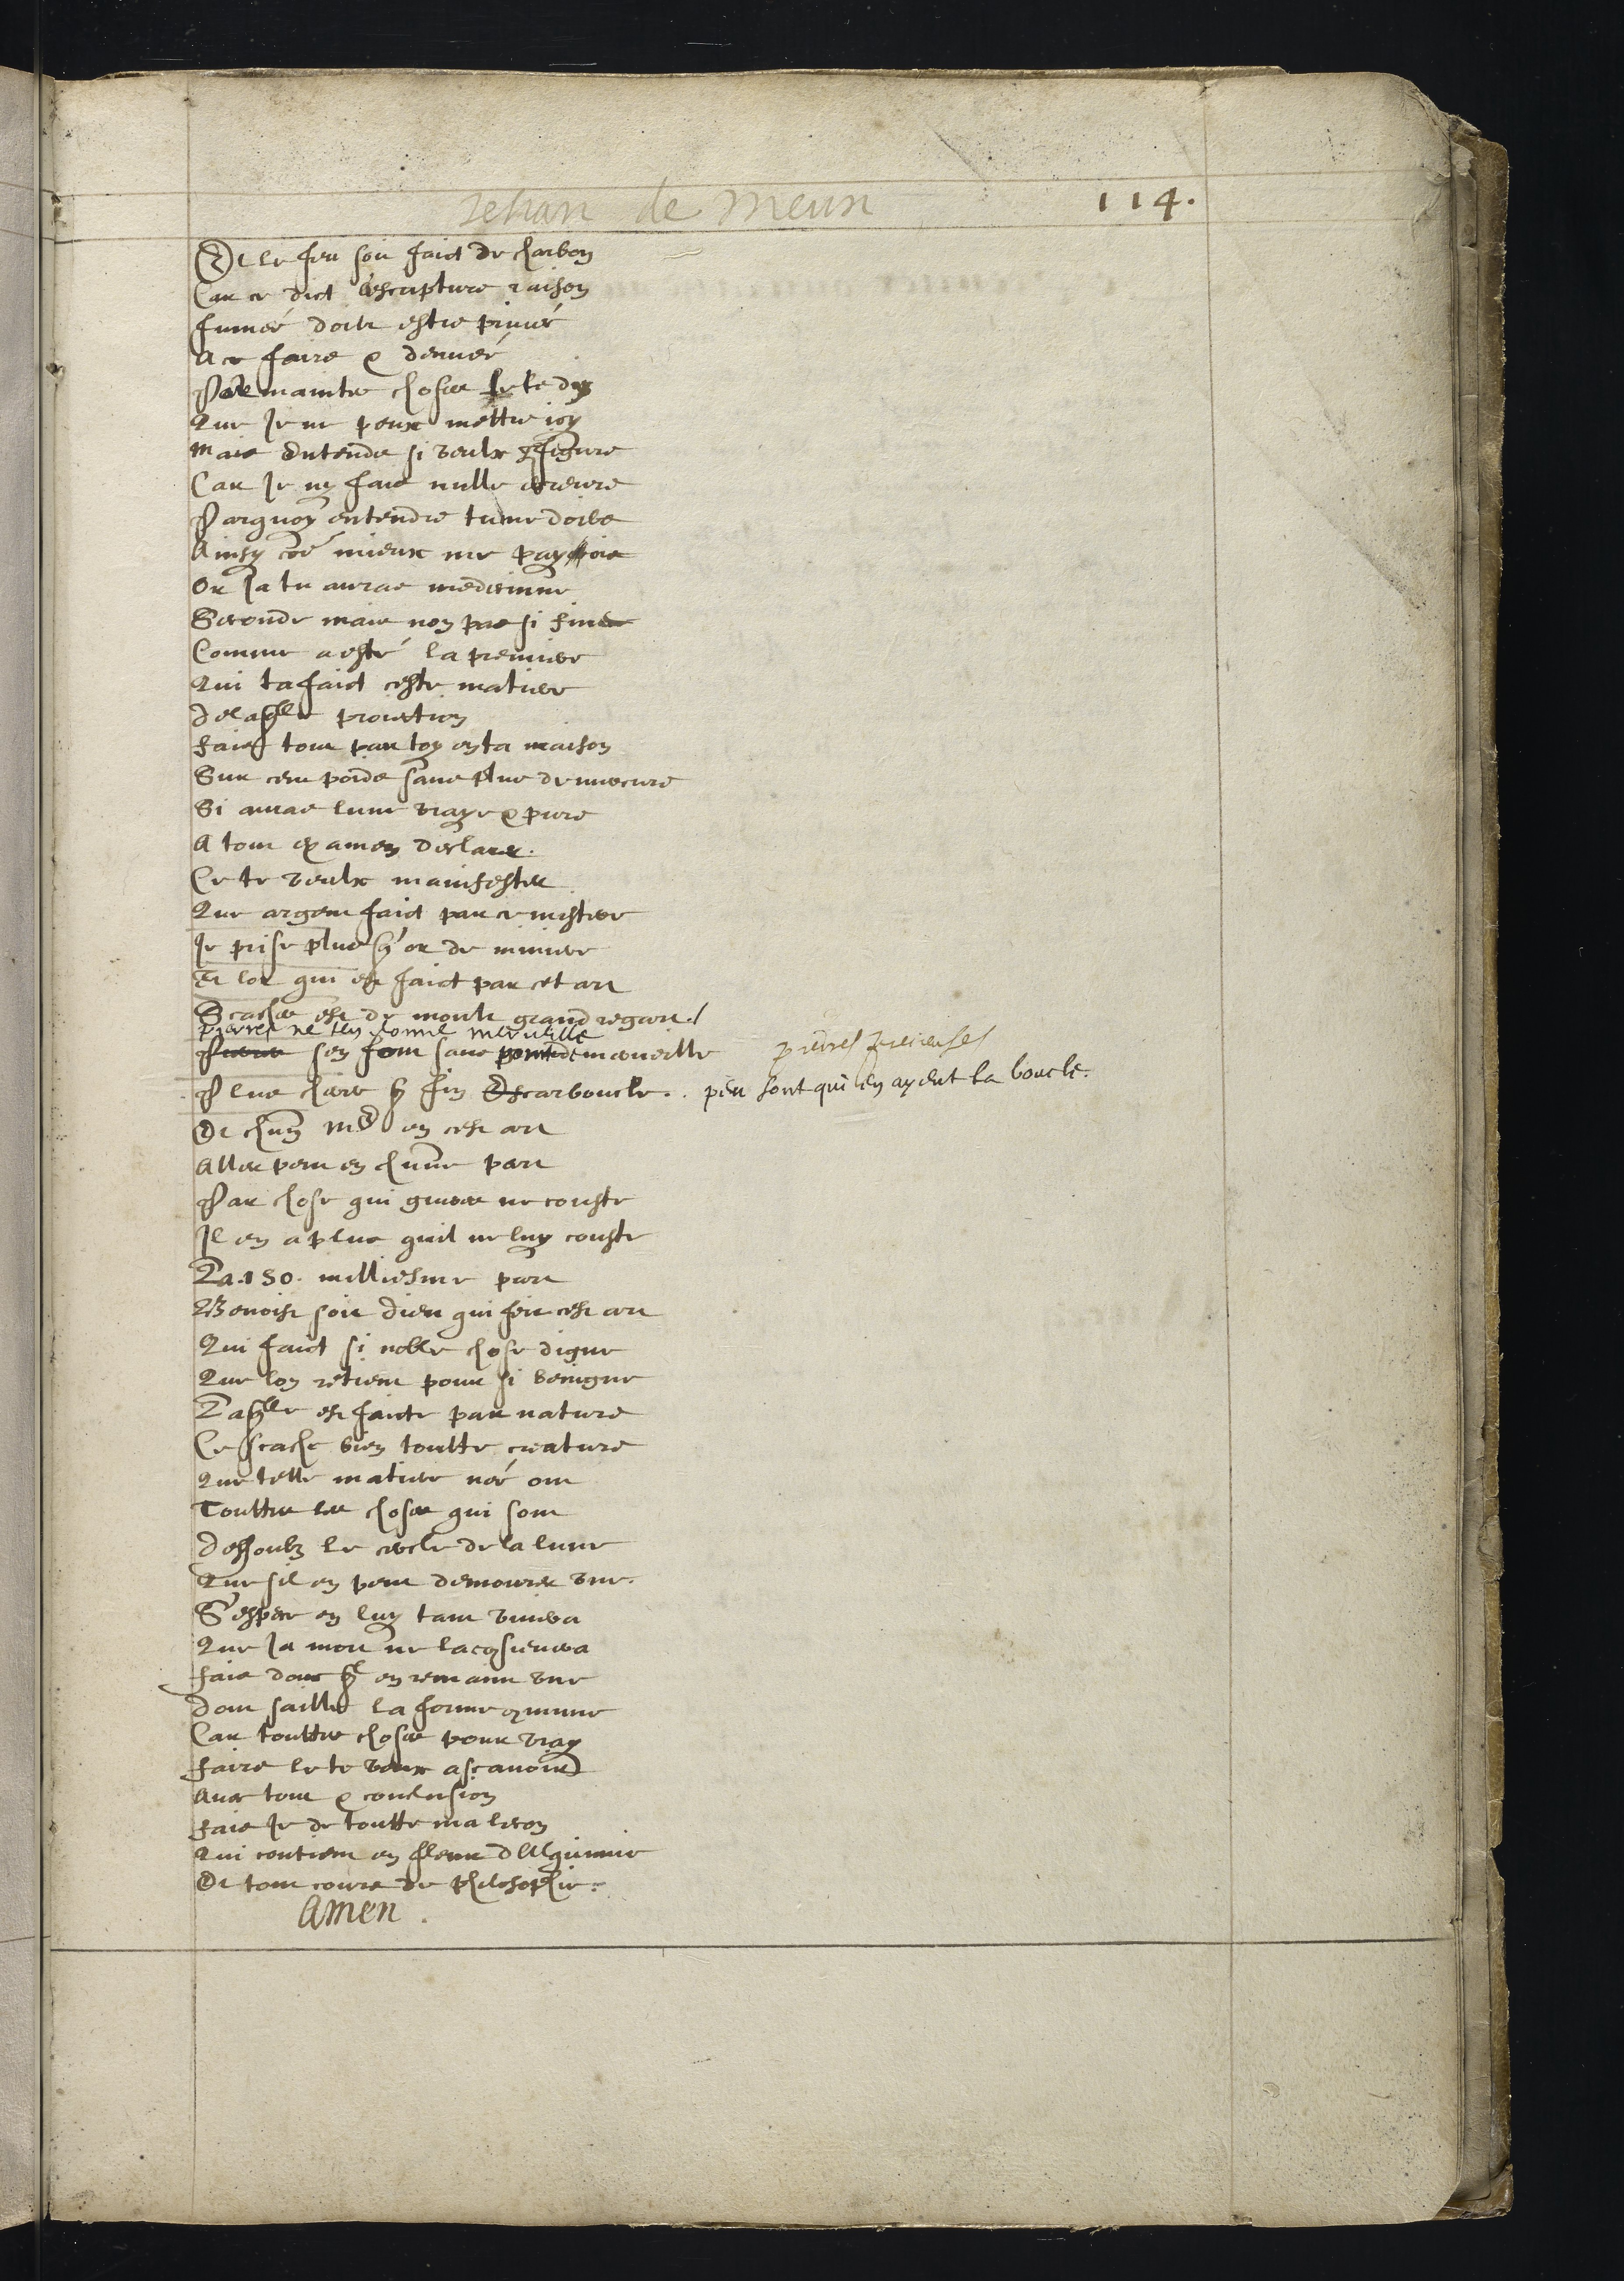 Jehan de Meun 114.
Et le feu soit faict de charbon
Car ce dict l'escripture raison
fumée doibt estre privée
A ce faire & denuée
Par maintes choses le te dy
Que Je ne peux mettre icy
Mais entends si veulx figure
Car Je ny fais nulle
Parquoy entendre tu me doibs
Ainsy coe mieux me
Or Ja tu auras medecinne
Seconde mais non pas si fine
Comme a esté la premiere
Qui ta faict ceste matiere
de laqlle proiection
fais tout par toy en ta maison
Sur cent poids sans plus de mercure
Si auras lune vraye & pure
A tout examen declarer.
Ce te veulx manifester
Que argent faict par ce mistere
Je prise plus q' or de miniere
Et lor qui est faict par cet art
Scaches est de moult grand regart /
pierres ne len donne merveille
Pierres sen font sans point de merveille pierres precieuses
Plus chere q fin Escarboucle. . peu sont qui en ayent la boucle.
Et chun en cest art
Aller peut en chunne part
Par chose qui guerre ne couste
Il en a plus quil ne luy couste
La .150. milliesme part
Benoist soit dieu qui feit cest art
Qui faict si noble chose digne
Que lon retient pour si benigne
Laqlle est faicte par nature
Ce scache bien toutte creature
Que telle matiere né ont
Touttes les choses qui sont
dessoubz le cercle de la lune
Que sil en peut demourer vne.
S'esper en luy tant vnivra
Que Ja mort ne la
fais donc q en remaint vne
dont saille la forme commune
Car touttes choses pour vray
faire le te veux ascauoir
Auec tout & conclusion
fais Je de toutte ma lecon
Qui contient en fleur d'Alquimie
Et tout cours de philosophie.
Amen.